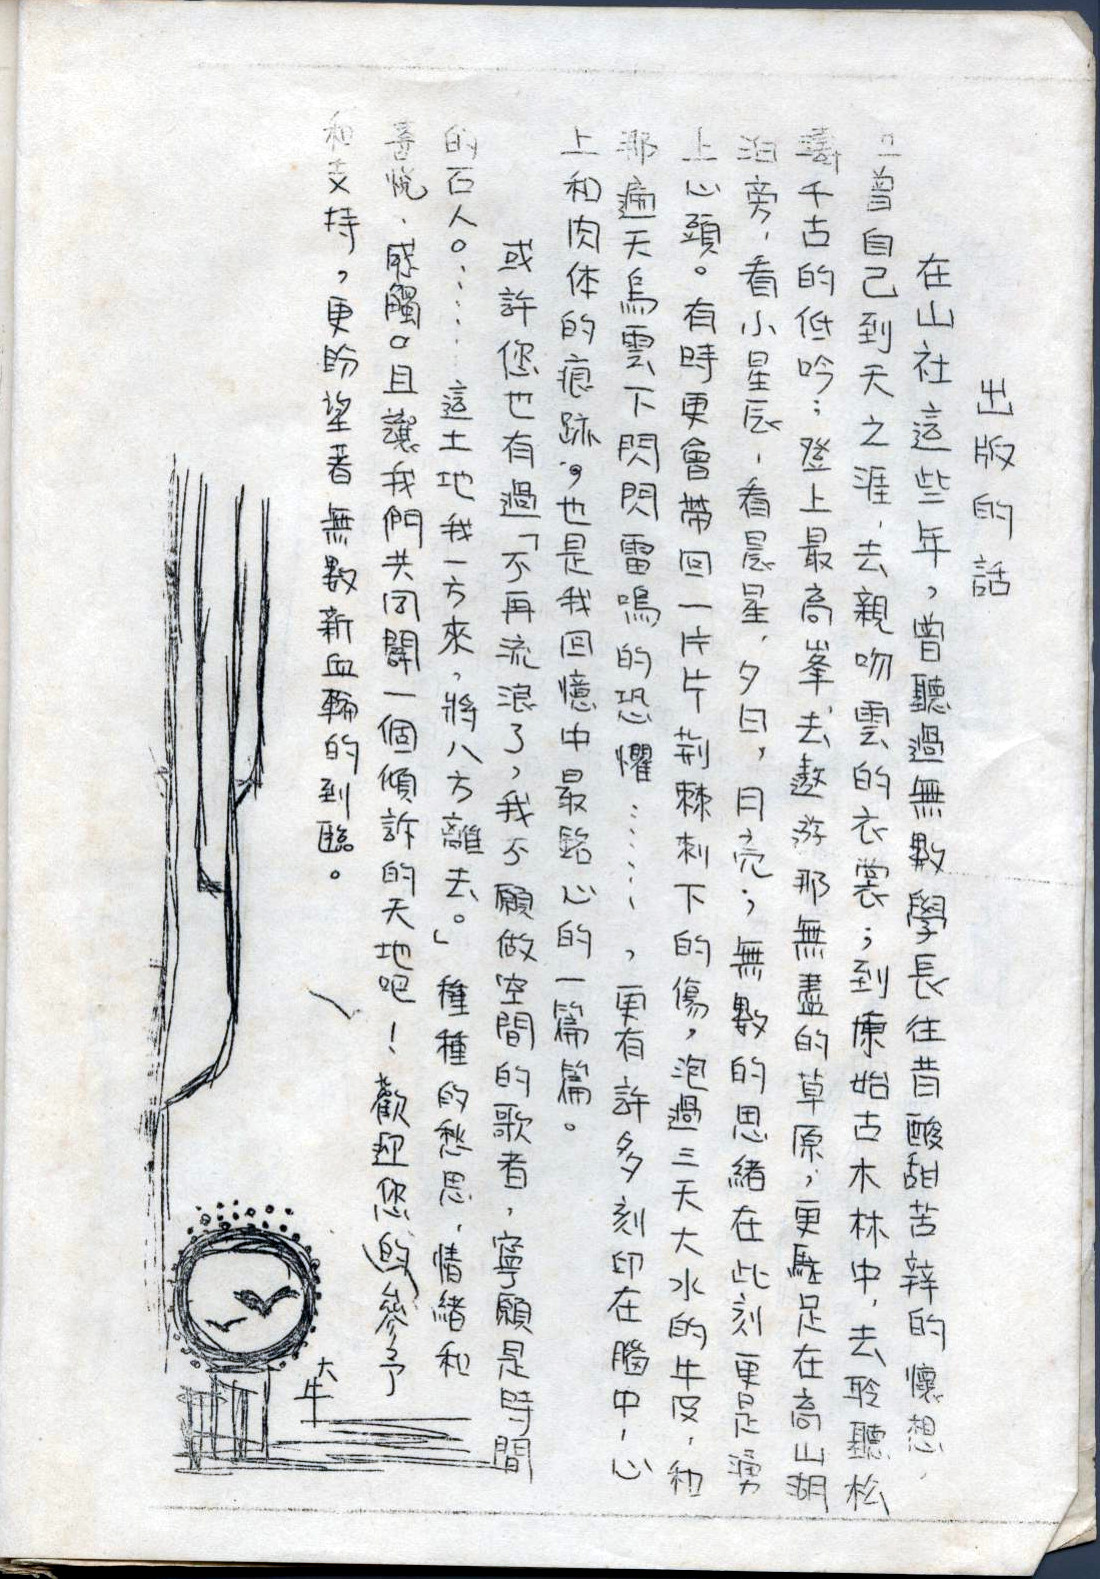 出版的話
在山社這些年，曾聽過無數學長往昔酸甜苦辣的懷想，
曾自己到天之涯、去親吻雲的衣裳；到原始古木林中，去聆聽松
濤千古的低吟；登上最高峯、去遨游那無盡的草原，更駐足在高山湖
泊旁，看小星辰，看晨星，夕日，月亮；無數的思緒在此刻更是湧
上心頭。有時更會帶回一片片荊棘刺下的傷，泡過三天大水的牛皮，和
那遍天烏雲下閃閃雷鳴的恐懼……，更有許多刻印在腦中，心
上和肉体的痕跡。也是我回憶中最銘心的一篇篇。
或許您也有過「不再流浪了，我不願做空間的歌者，寧願是時間
的石人。……這土地我一方來，將八方離去。」種種的愁思，情緒和
喜悅、感觸。且讓我們共同闢一個傾訴的天地吧！歡迎您的參予
和支持，更盼望著無數新血輪的到臨。
大牛